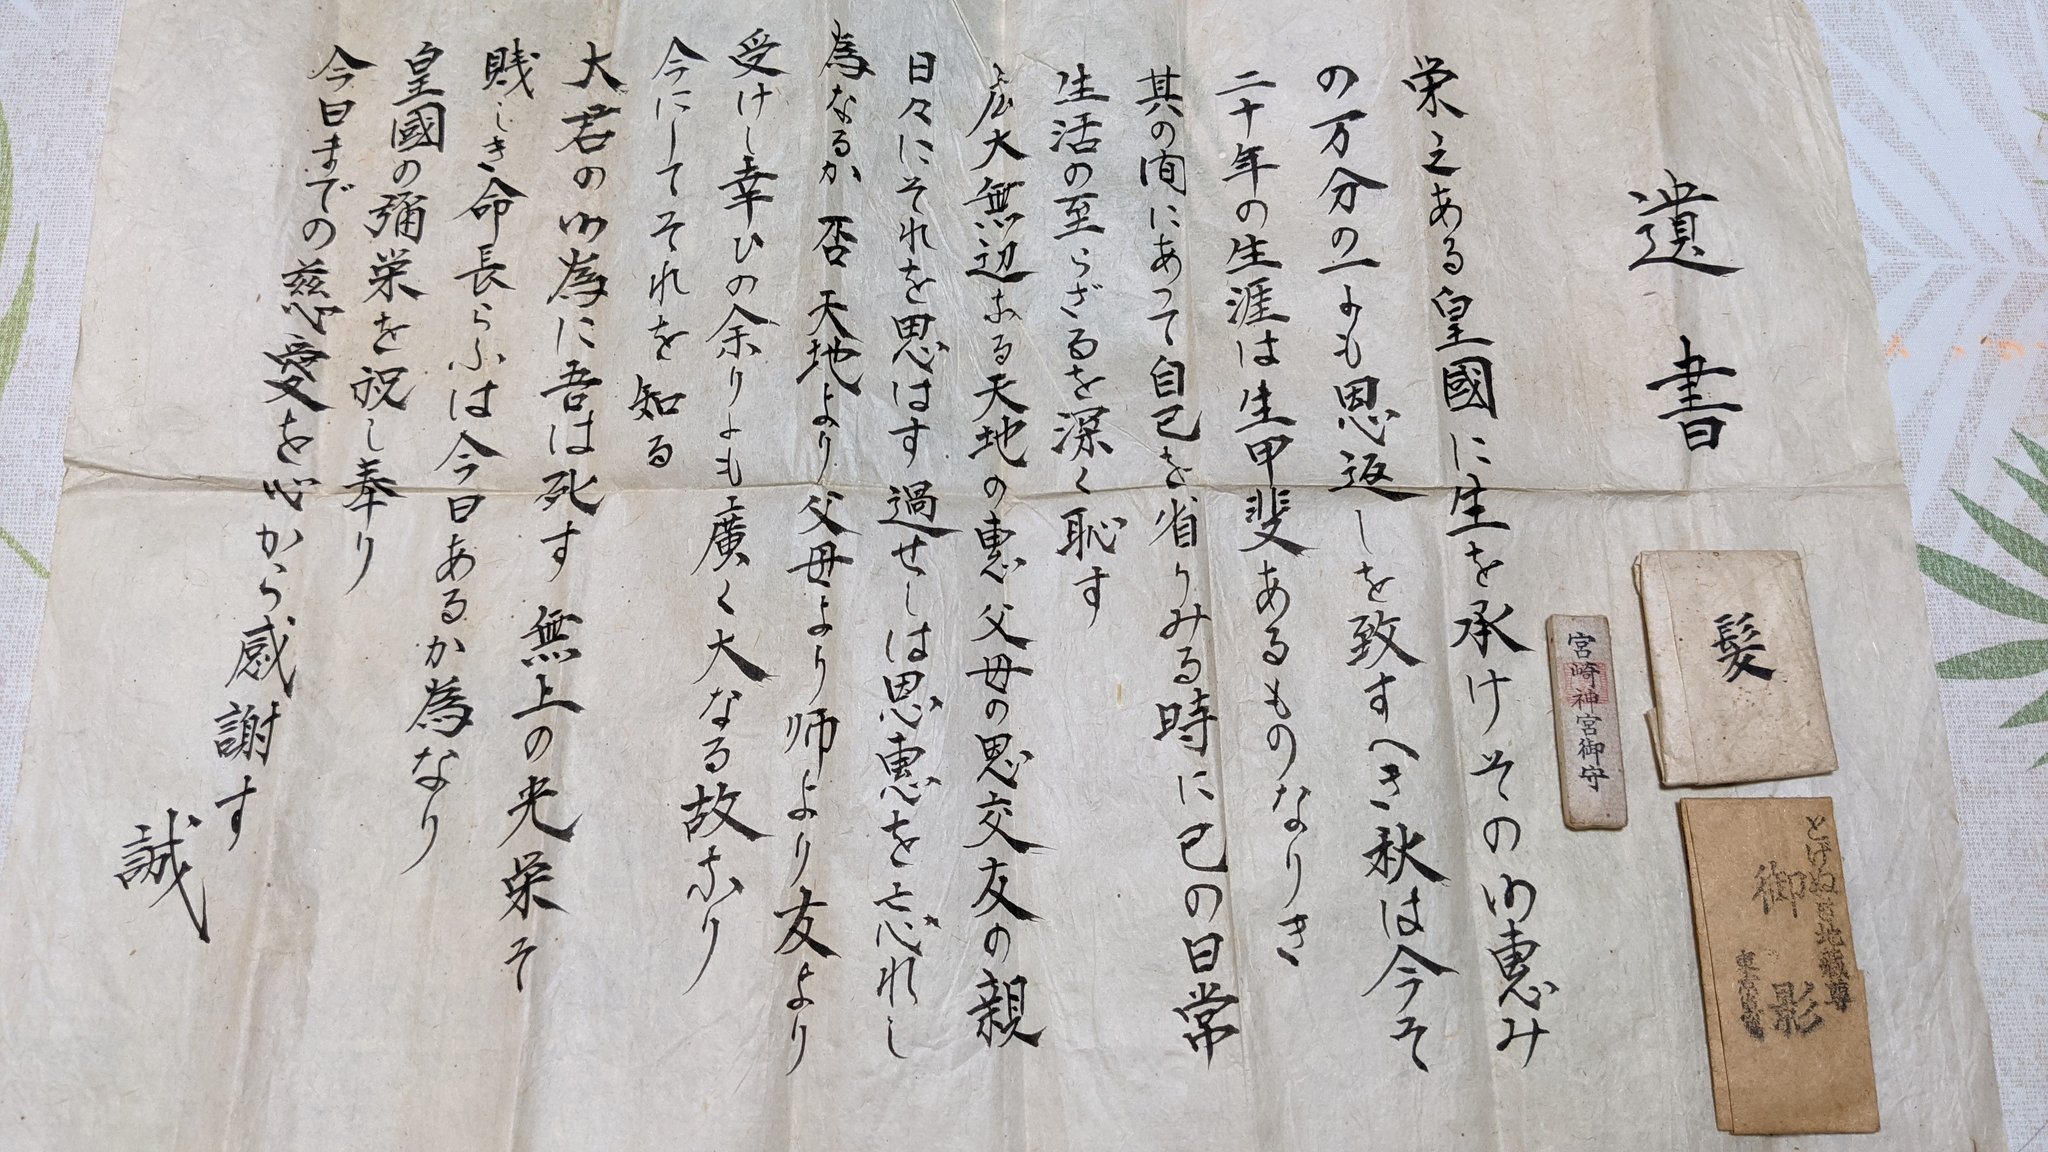 遺書
栄えある皇國に生を承けその御恵み
の万分の一よも恩返しを致すへき秋は今そ
二十年の生涯は生甲斐あるものなりき
其の间にあって自己を省りみる時に己の日常
生活の至らざるを深く恥す
広大無辺なる天地の恵父母の恩交友の親
日々にそれを思はす過せしは恩恵を亡忘れし
為なるか 否 天地より父母より师より友より
受けし幸ひの余りよも廣く大なる故なり
今にしてそれを知る
大君の御為に吾は死す 無上の光栄そ
賎しき命長らふは今日あるか為なり
皇國の彌栄を祝し奉り
今日までの慈愛を心から感謝す
誠
髪
宮崎神宮御守
とげぬき地蔵尊
御影